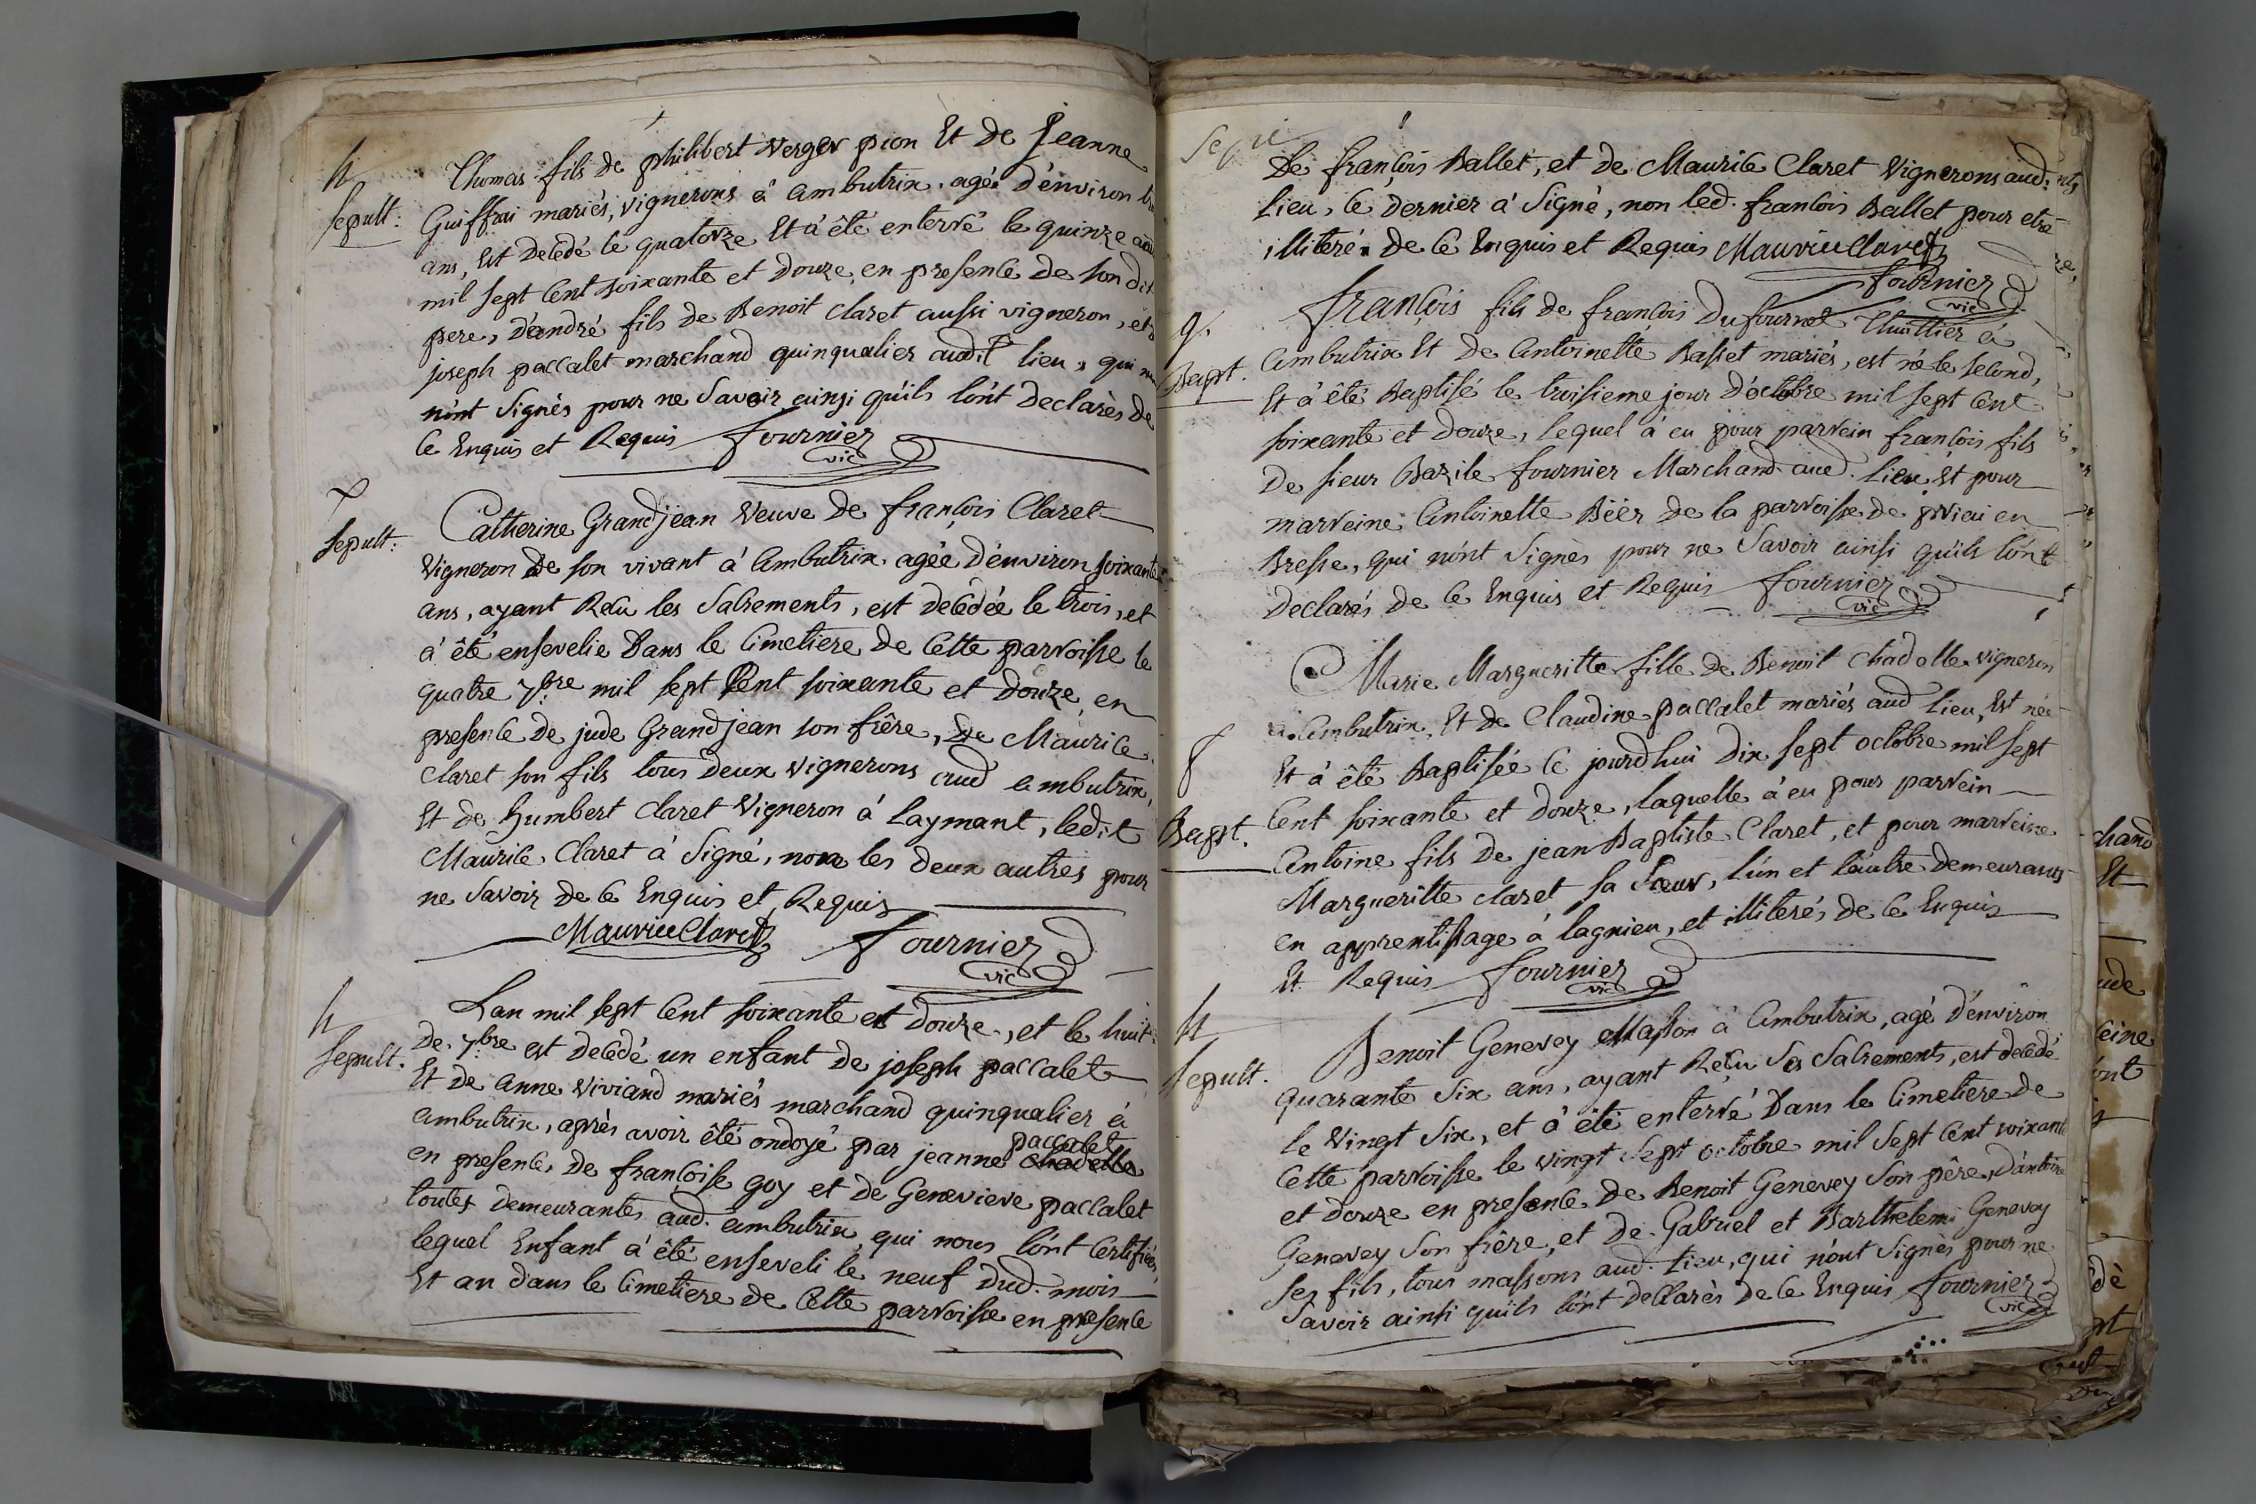 h
Thomas fils de philibert Verger pion Et de Jeanne
sepult: Guiffrai mariés, vignerons à ambutrix, agée d'énviron
ans, Est decédé le quatorze Et à été enterré le quinze
mil sept Cent soixante et douze, en presence de son dit
pere, d'andré fils de Benoit Claret aussi vigneron, et
joseph paccalet marchand quinqualier audit lieu, qui
n'ónt Signés pour ne Savoir ainsi qu'ils l'ónt Declarés de
Ce Enquis et Requis fournier
vic
Catherine Grandjean Veuve de françois Claret
sepult: Vigneron de son vivant à Ambutrix, agée d'énviron soixante
ans, ayant Reçu les Sacrements, est decédée le trois, et
à été ensevelie Dans le Cimetiere de Cette parroisse le
quatre 7bre mil sept Cent soixante et douze, en
presence de jude Grandjean son frère, de Maurice
Claret son fils tous deux vignerons aud ambutrix,
Et de humbert Claret Vigneron à laymant, ledit
Maurice Claret à Signé, non les deux autres pour
ne Savoir de Ce Enquis et Requis
Maurice Claret fournier
vic
h
L'an mil sept Cent soixante et douze, et le huit
sepult. De 7bre est decédé un enfant de joseph paccalet
Et de Anne Viviand mariés marchand quinqualier à
ambutrix, après avoir été ondoyé par jeanne chadelle
paccalet
en presence, de françoise goy et de Genevieve paccalet
toutes demeurantes aud. ambutrix, qui nous l'ónt Certifiées,
lequel Enfant à été enseveli le neuf dud. mois
Et an dans le Cimetiere de Cette parroisse en presence
De françois Ballet, et de Maurice Claret Vignerons aud.
lieu, Ce dernier à Signé, non led. françois Ballet pour etre
illiteré de Ce Enquis et Requis Maurice Claret
fournier
vic
françois fils de françois Dufournet Thuillier à
g.
Bapt. Ambutrix Et de Antoinette Basset mariés, est né le second,
Et à été Baptisé le troisieme jour d'óctobre mil sept Cent
soixante et douze, lequel à eu pour parrein françois fils
De sieur Bazile fournier Marchand aud. lieu, Et pour
marreine Antoinette Béér de la parroisse de priai en
Bresse, qui n'ónt Signés pour ne Savoir ainsi qu'ils l'ónt
Declarés de Ce Enquis et Requis fournier
vic
Marie Margueritte fille de Benoit Chadelle vigneron
à Ambutrix, Et de Claudine paccalet mariés aud lieu, Est née
f
Et à été Baptisée Ce jourd'hui Dix sept octobre mil sept
Bapt. Cent soixante et douze, laquelle à eu pour parrein
Antoine fils de jean Baptiste Claret, et pour marreine
Margueritte Claret sa Soeur, l'ún et l'áutre demeurans
en apprentissage à lagnieu, et illiterés de Ce Enquis
Et Requis fournier
vic
h
Benoit Genevey Masson à Ambutrix, agé d'énviron
sepult. quarante Six ans, ayant Reçu Ses Sacrements, est decédé
le Vingt Six, et à été enterré Dans le Cimetiere de
Cette parroisse le vingt Sept octobre mil Sept Cent soixante
et douze en presence de Benoit Genevey Son père, d'ántoine
Genevey Son frère, et de Gabriel et Barthelemi Genevey
Ses fils, tous massons aud. Lieu, qui n'ónt Signés pour ne
Savoir ainsi qu'ils l'ónt declarés de Ce Enquis fournier
vic